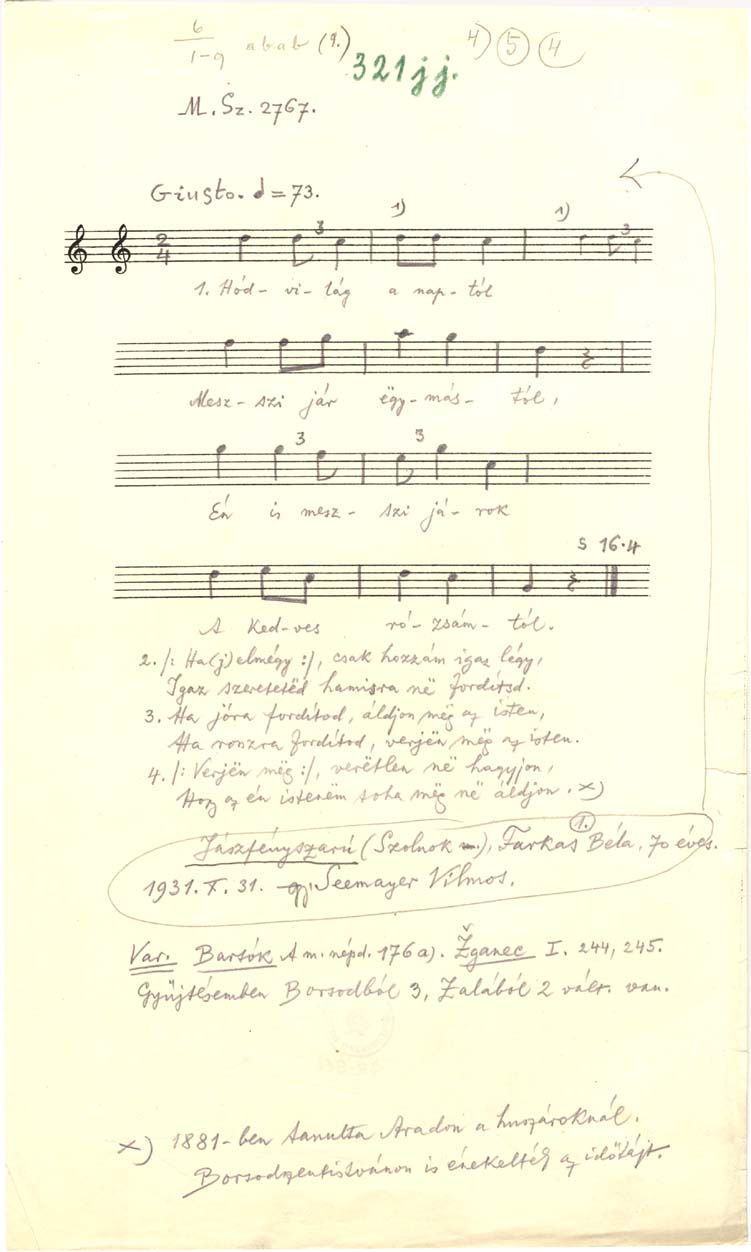 6/1-9 abab (9.) 4) 5 4
321jj.
M. Sz. 2767.
Giusto. ♩ = 73.
3 1) 1) 3
2/4
1. Hód- vi- lág a nap- tól
Mesz- szi jár ëgy- más- tól,
3 3
Én is mesz- szi já- rok
S 16.4
A ked-ves ró- zsám- tól.
2. /: Ha(j) elmégy :/, csak hozzám igaz légy,
Igaz szeretetëd hamisra në fordítsd.
3. Ha jóra fordítod, áldjon mëg az isten,
Ha rosszra fordítod, verjën mëg az isten.
4. /: Verjën mëg :/, verëtlen në hagyjon,
Hogy az én istenëm soha mëg në áldjon. x)
Jászfényszaru (Szolnok m.), Farkas 1. Béla, 70 éves.
1931. X. 31. gy. Seemayer Vilmos.
Var. Bartók A m. népd. 176a). Žganec I. 244, 245.
Gyüjtésemben Borsodból 3, Zalából 2 vált. van.
x) 1881-ben tanulta Aradon a huszároknál.
Borsodszentistvánon is énekelték az időtájt.